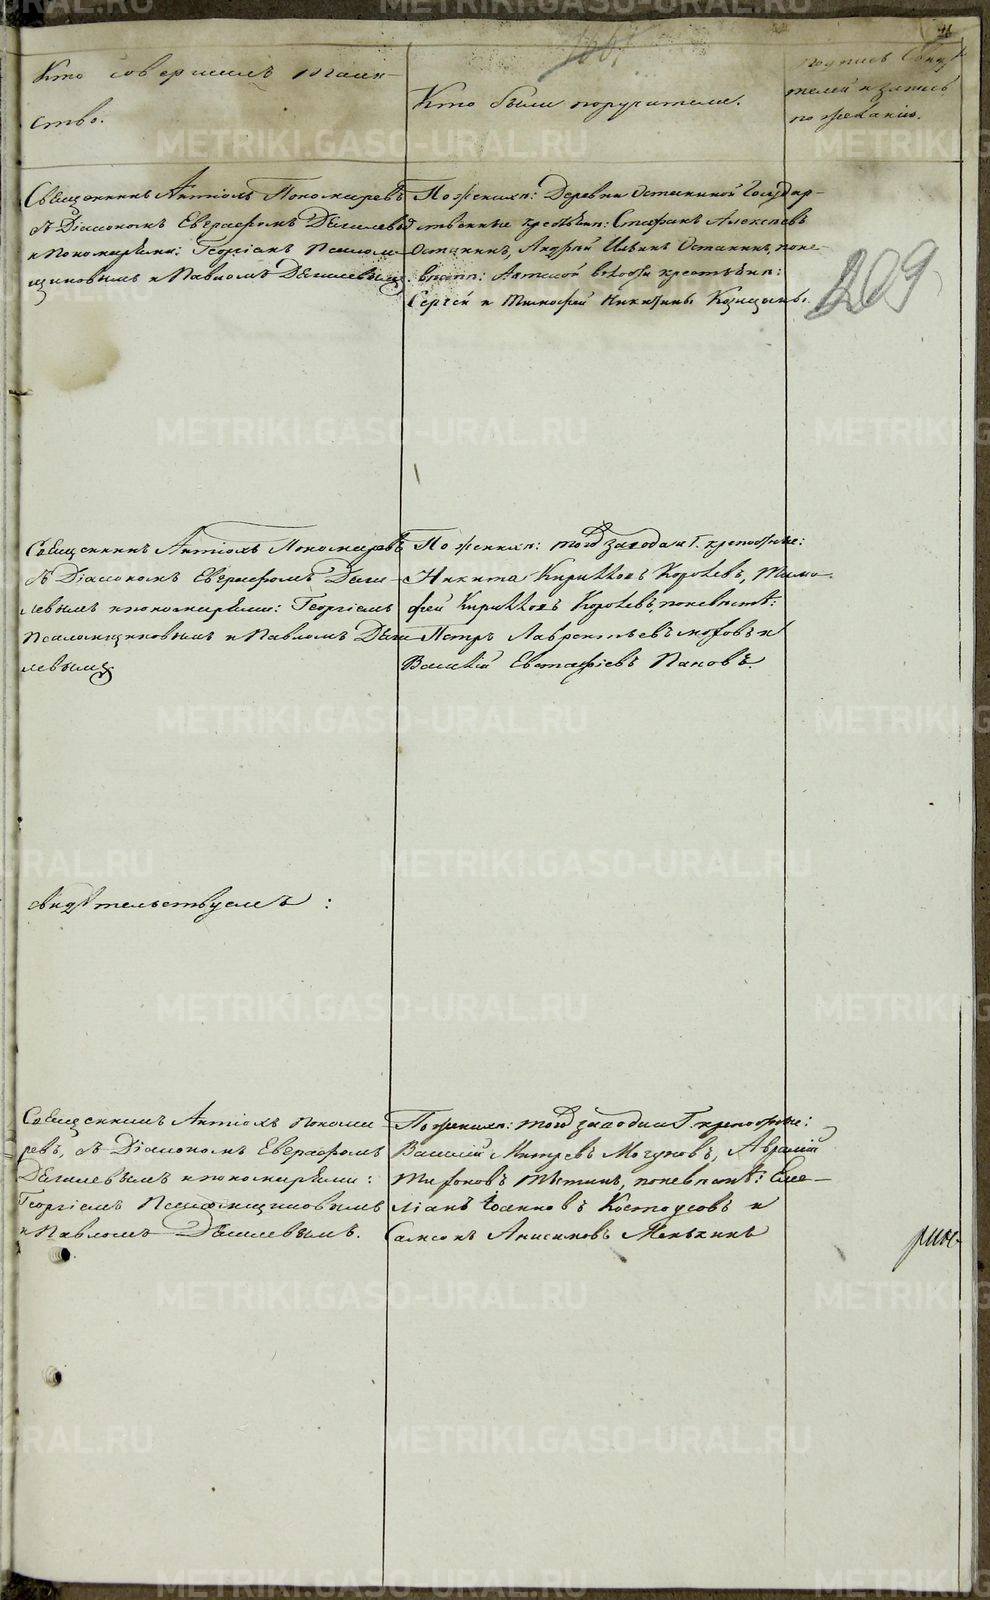 Кто совершилъ таин-
ство.
Кто были поручители.
подпись свидѣ-
телей и запись
по желанію.
209
Священникъ Антіохъ Пономаревъ
съ Діакономъ Евграфомъ Дягилевымъ
и пономарями: Георгіемъ Псалом-
щиковымъ и Павломъ Дягилевымъ
По женихѣ: Деревни Останиной Государ-
ственные крестьян: Стефанъ Алексѣевъ
Останинъ, Андрей Ильинъ Останинъ, по не-
вѣстѣ: крестьян:
Сергѣй и Тимофей Никитины Козицыны.
Священникъ Антіохъ Пономаревъ
съ Діакономъ Евграфомъ Дяги-
левымъ и пономарями: Георгіемъ
Псаломщиковымъ и Павломъ Дяги-
левымъ
По женихѣ: того завода
Никита Кирилловъ Королевъ, Тимо-
фей Кирилловъ Королевъ, по невѣстѣ:
Петръ Лаврентьевъ и
Василій Евстафіевъ Пановъ.
свидѣтельствуемъ :
Священникъ Антіохъ Понома-
ревъ, съ Діакономъ Евграфомъ
Дягилевымъ и пономарями:
Георгіемъ Псаломщиковымъ
и Павломъ Дягилевымъ.
По женихѣ: того завода
Василій Могуновъ, Аврамій
по невѣстѣ: Еме-
ліанъ Іоанновъ Костоусовъ и
Самсонъ Анисимовъ Менькинъ
METRIKI.GASO-URAL.RU